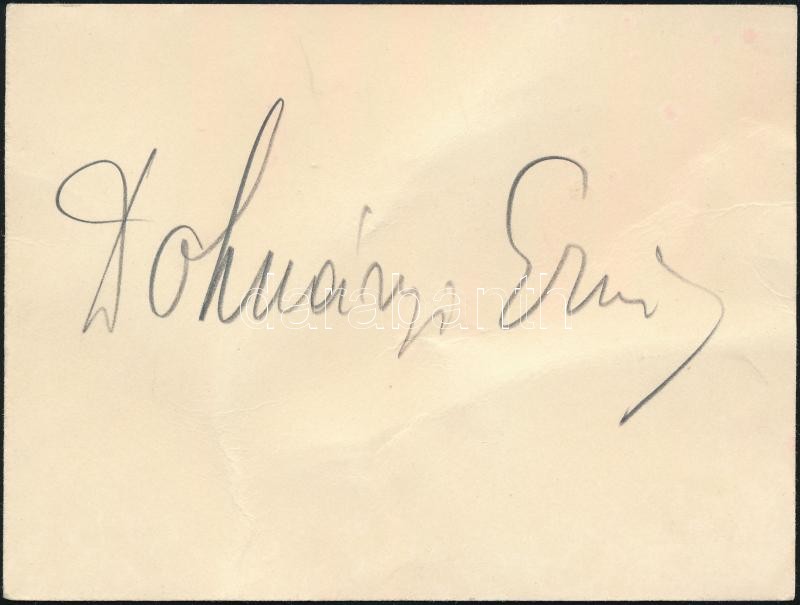 Dohnányi Ernő
darabanth